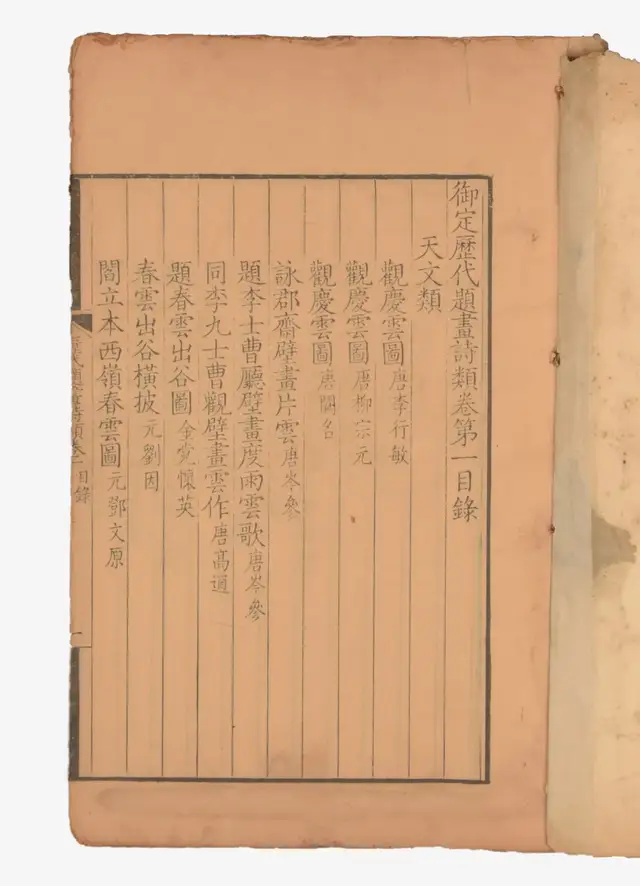 御定歷代題畫詩類卷第一目錄
天文類
觀慶雲圖 唐李行敏
觀慶雲圖 唐柳宗元
觀慶雲圖 唐闕名
詠郡齋壁畫片雲 唐岑參
題李士曹廳壁畫度雨雲歌 唐岑參
同李九士曹觀壁畫雲作 唐高適
題春雲出谷圖 金党懷英
春雲出谷橫披 元劉因
閻立本西嶺春雲圖 元鄧文原
題畫詩類卷一 目錄 一